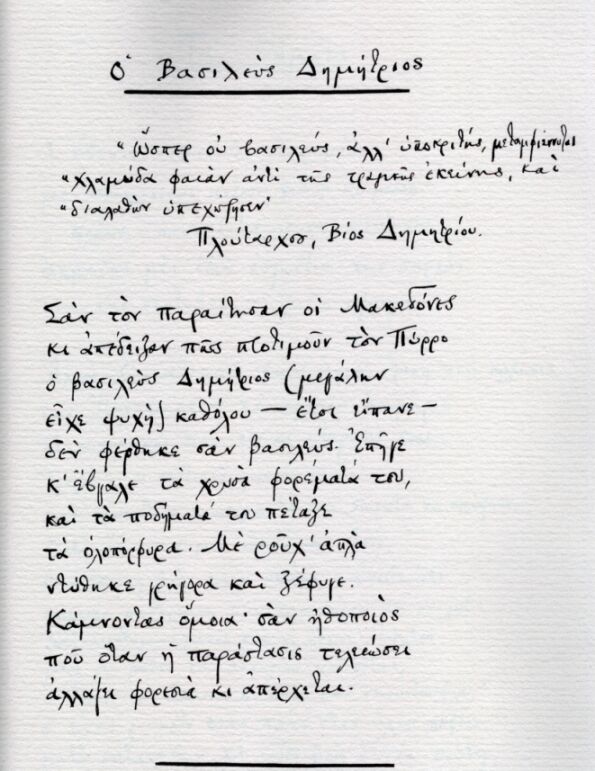 Ὁ Βασιλεὺς Δημήτριος
“Ὥσπερ οὐ βασιλεύς, ἀλλ' ὑποκριτής, μεταμφιέννυται
“χλαμύδα φαιὰν ἀντὶ τῆς τραγικῆς ἐκείνης, καὶ
“διαλαθὼν ὑπεχώρησεν”
Πλούταρχος, Βίος Δημητρίου.
Σὰν τὸν παραίτησαν οἱ Μακεδόνες
κι ἀπέδειξαν πῶς προτιμοῦν τὸν Πύρρο
ὁ βασιλεὺς Δημήτριος (μεγάλην
εἶχε ψυχὴ) καθόλου — ἔτσι εἴπανε —
δὲν φέρθηκε σὰν βασιλεύς. Ἐπῆγε
κ' ἔβγαλε τὰ χρυσᾶ φορέματά του,
καὶ τὰ ποδήματά του πέταξε
τὰ ὁλοπόρφυρα. Μὲ ροῦχ' ἁπλὰ
ντύθηκε γρήγορα καὶ ξέφυγε.
Κάμνοντας ὅμοια σὰν ἠθοποιὸς
ποῦ ὅταν ἡ παράστασις τελειώσει
ἀλλάζει φορεσιὰ κι ἀπέρχεται.